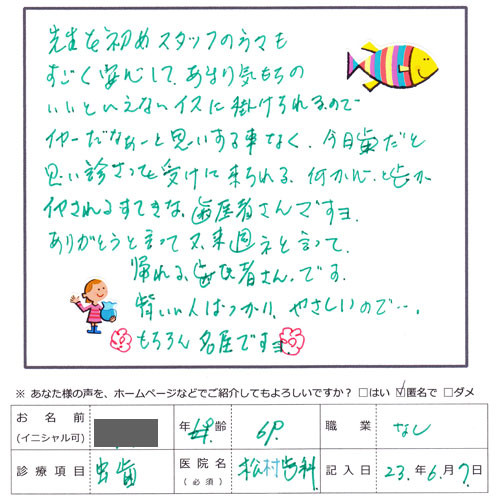 先生を初めスタッフのうえも
すごく安心して、あまり気もちの
いいといえないイスに掛けられるので
イヤーだなぁーと思いする事なく、今日歯だと
思い診さつを受けに来られる、何か心と歯が
やされるすてきな、歯医者さんですヨ。
ありがとうと言って又、来週ネと言って、
帰れる、歯医者さん。です。
賢いい人ばっかり、やさしいので…、
もちろん名医ですヨ
※ あなた様の声を、ホームページなどでご紹介してもよろしいですか？ □はい ☑匿名で □ダメ
お名前 (イニシャル可) 年齢 69. 職業 なし
診療項目 虫歯 医院名 (必須) 松村歯科 記入日 23.年6.月7.日